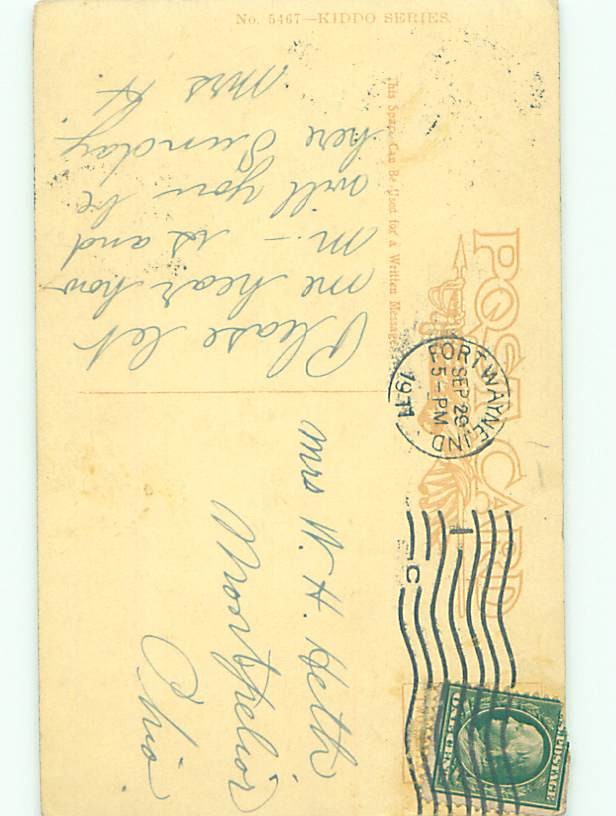 No. 5467—KIDDO SERIES.
POST CARD
This Space Can Be Used for a Written Message
FORT WAYNE, IND.
SEP 29
5-PM
1911
1
C
POSTAGE
ONE CENT
Please let
me hear how
M. - is and
will you be
here Sunday
Mrs H.
Mrs W. H. Heth
Montpelior
Ohio